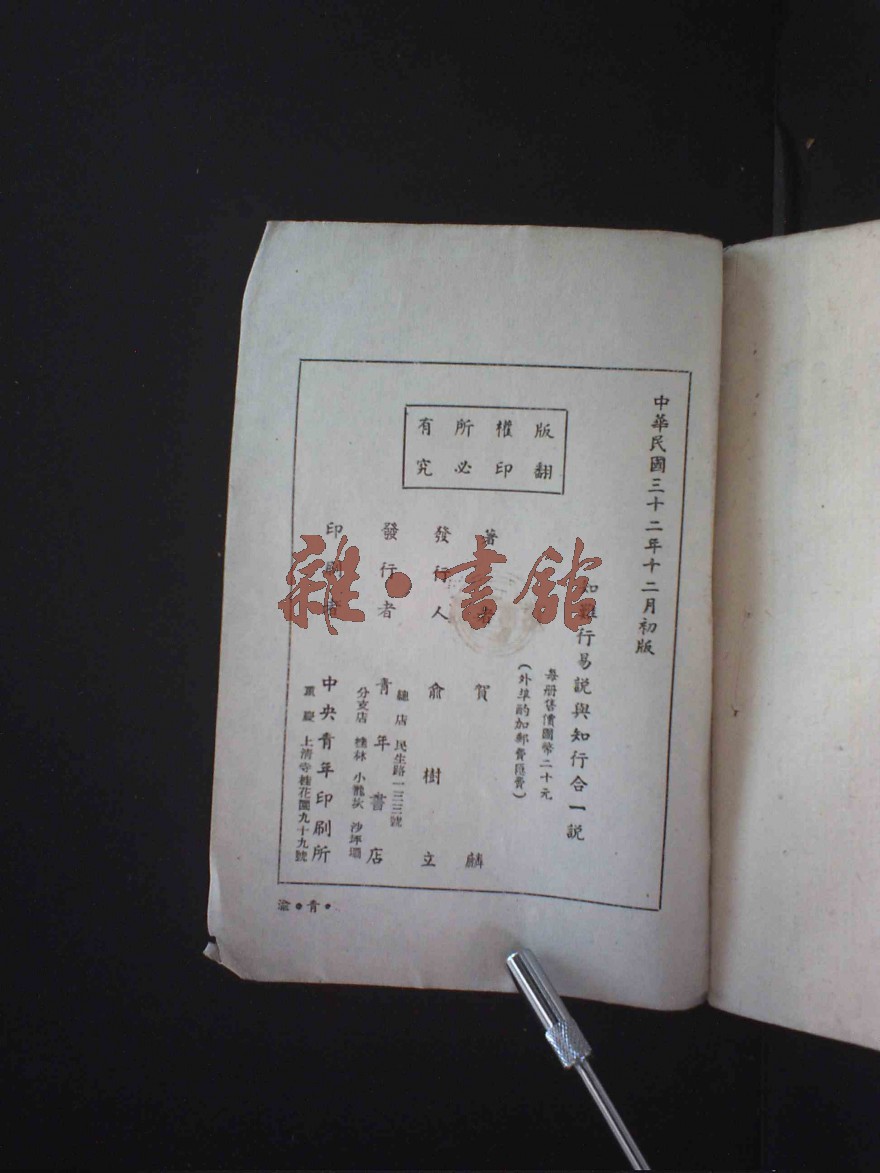 中華民國三十二年十二月初版
知難行易說與知行合一說
每册售價國幣二十元
(外埠酌加郵費匯費)
版權所有
翻印必究
著者 賀麟
發行人 俞樹立
發行者 青年書店
總店 民生路一三三號
分支店 桂林 小龍坎 沙坪壩
印刷者 中央青年印刷所
重慶 上清寺桂花園九十九號
渝•青•
雜•書館